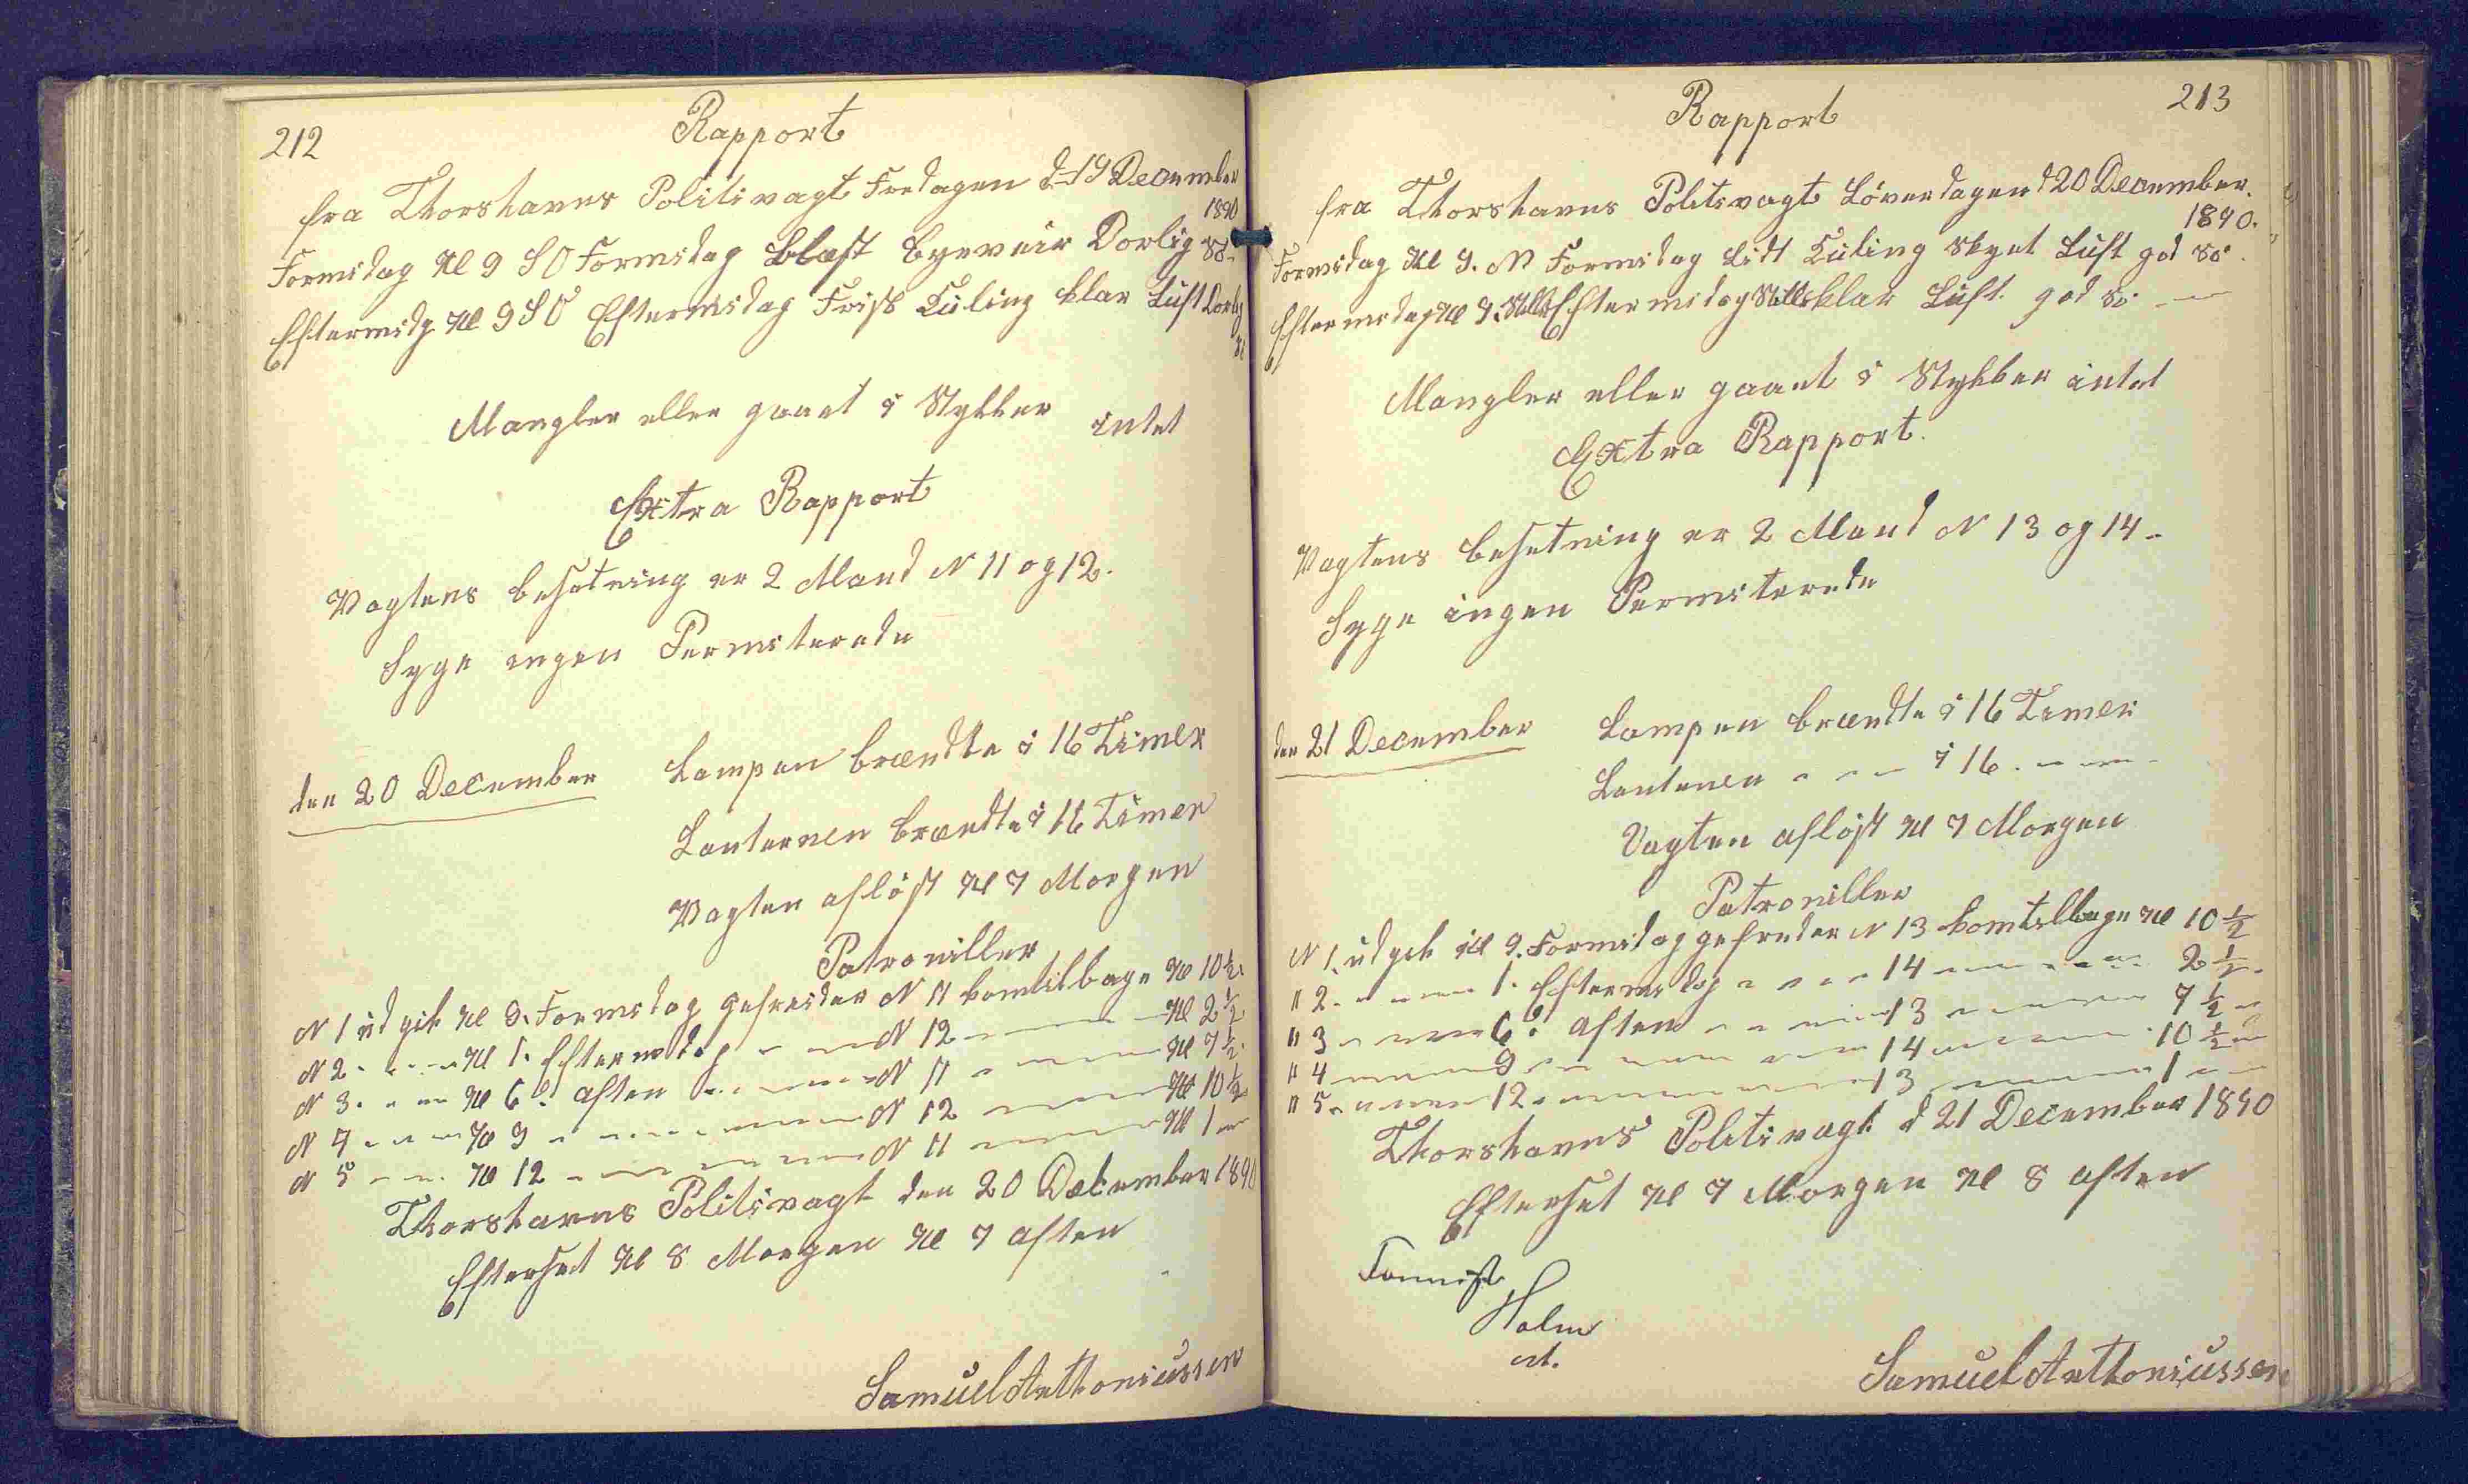 212
Rapport
fra Thorshavns Politivagt Fredagen d 19 December
1890
Formidag Kl 9 S O Formidag blæst byeveir Dorlig Sö
Eftermidg Kl 9 S O Eftermidag Frisk Kuling klar Luft Dorlig
Sö
Mangler eller gaaet i Stykker intet
Extra Rapport
Vagtens besetning er 2 Mand N 11 og 12.
Syge ingen Permiterede
den 20 December Lampen brændte i 16 Timer
Lanternen brændte i 16 Timer
Vagten aflöst Kl 7 Morgen
Patroniller
N 1 udgik Kl 9. Formidag gefreider N 11 kom tilbage Kl 10 1/2.
N 2 - - - - Kl 1. Eftermidag - - - N 12 - - - - Kl 2 1/2
N 3. - - - Kl 6. aften - - - - N 11 - - - - Kl 7 1/2.
N 4 - - - Kl 9 - - - - - - N 12 - - - - Kl 10 1/2
N 5 - - - Kl 12 - - - - - - N 11 - - - - Kl 1 -
Thorshavns Politivagt den 20 December 1890
Efterset Kl 8 Morgen Kl 7 aften
Samuel Anthoniussen
213
Rapport
fra Thorshavns Politivagt Löverdagen d 20 December.
1890.
Formidag Kl 9. N Formidag Lidt Kuling skyet Luft god Sö.
Eftermidag Kl 9. Stille Eftermidag Stille klar Luft. god Sö. -
Mangler eller gaaet i Stykker intet
Extra Rapport.
Vagtens besetning er 2 Mand N 13 og 14 -
Syge ingen Permiterede
den 21 December Lampen brændte i 16 Timer
Lantenen - - - i 16. - - -
Vagten aflöst Kl 7 Morgen
Patroniller
N 1. udgik Kl 9. Formidag gefreider N 13 kom tilbage Kl 10 1/2
" 2. - - - - 1. Eftermidag - - - - 14 - - - - - 2 1/2 -
" 3 - - - - 6. aften - - - - 13 - - - - 7 1/2 -
" 4 - - - - 9 - - - - - - 14 - - - - 10 1/2 -
" 5. - - - - 12. - - - - - - 13 - - - - 1 - -
Thorshavns Politivagt d 21 December 1890
Efterset Kl 7 Morgen Kl 8 aften
Holm
Samuel Anthoniussen